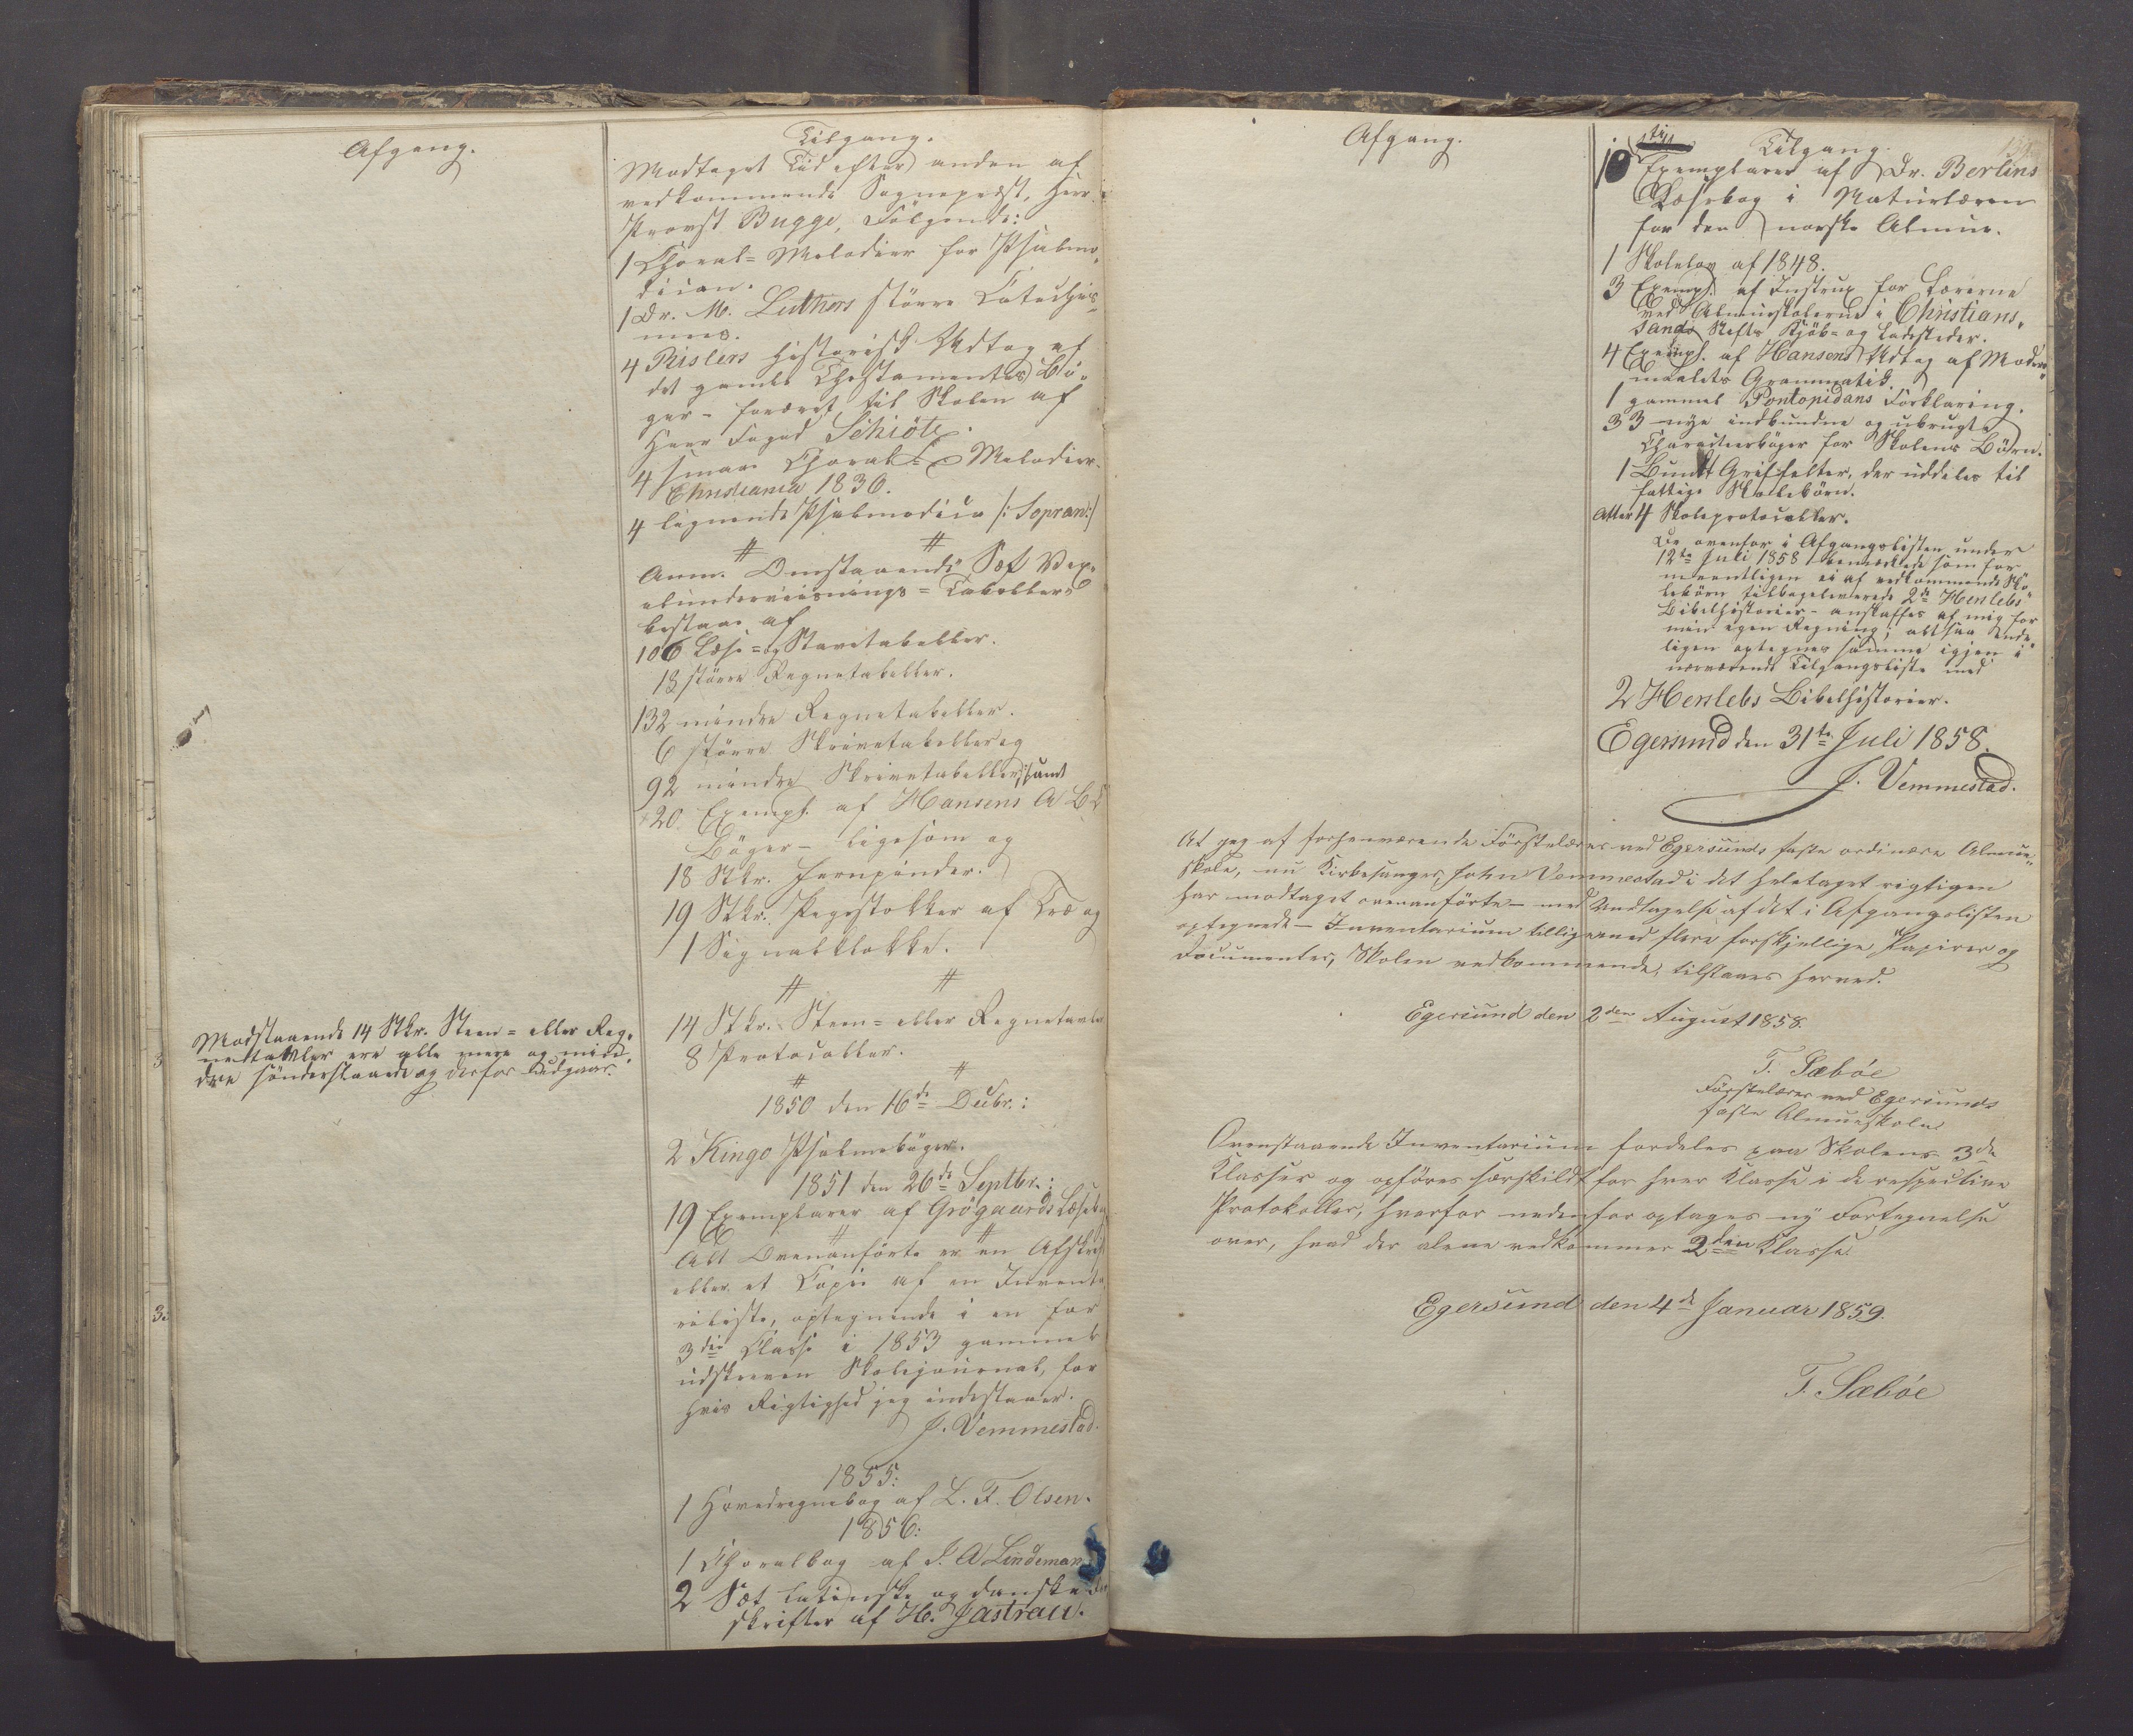 Afgang.
Tilgang.
Modtaget Tid efter anden af
vedkommende Sognepræst, Herr
Provst Bugge, Følgende:
1 Choral-Melodier for Psalmo-
dicon.
1 Dr. M. Luthers större Catechis-
mus.
4 Rislers historisk Udtog af
det gamle Thestamentes Bö-
ger - foræret til Skolen af
Herr Foged Schiötz.
4 smaae Choral-Melodier.
Christiania 1836.
4 lignende Psalmodica /: Sopran:/
# #
Anm. Omstaaende Sæt Vex-
elunderviisnings-Tabeller
bestaae af
106 Læse- og Stavetabeller.
13 större Regnetabeller.
132 mindre Regnetabeller.
6 större Skrivetabeller og
92 mindre Skrivetabeller; samt
20 Exempl. af Hansens A B C
Böger - ligesom og
18 Stkr. Jernpinder.
19 Stkr. Pegestokker af Træ og
1 Signalklokke.
# #
14 Stkr. Steen- eller Regnetavler
8 Protocoller.
# #
Modstaaende 14 Stkr. Steen- eller Reg-
netavler ere alle mere og min-
dre sönderslaaede og derfor udgaar.
1850 den 16de Decbr.:
2 Kingo Psalmebøger.
1851 den 26de Septbr.:
19 Exemplarer af Grögaards Læseb
# #
Alt Ovenanförte er en Afskrift
eller et Copie af en Invento
rieliste, optegnende i en for
3die Classe i 1853 gammel
udskreven Skolejournal, for
hvis Rigtighed jeg indestaaer.
J. Vemmestad.
1855:
1 Hovedregnebog af L. F. Olsen.
1856:
1 Choralbog af O. A Lindeman
2 Sæt latinske og danske
skrifter af H. Jastrau.
Afgang.
Tilgang.
10 Exemplarer af Dr. Berlins
Læsebog i Naturlæren
for den norske Almue.
1 Skolelov af 1848.
3 Exempl. af Instrux for Lærerne
ved Almueskolerne i Christians-
sands Stifts Kjöb- og Ladesteder.
4 Exempl. af Hansens Udtog af Moders-
maalets Grammatik.
1 gammel Pontopidans Forklaring.
33 nye indbundne og ubrugte
Characteerböger for Skolens Börn.
1 Bundt Griffelter, der uddeles til
fattige Skolebörn.
Atter 4 Skoleprotocoller.
De ovenfor i Afgangslisten under
12te Juli 1858 bemærkede som for
meentligen ei af vedkommende Sko
lebörn tilbageleverede 2de Herslebs
Bibelhistorier - anskaffes af mig for
min egen Regning; altsaa ende
ligen optegnes samme igjen i
nærværende Tilgangsliste med
2 Herslebs Bibelhistorier.
Egersund den 31te Juli 1858.
J. Vemmestad.
At jeg af forhenværende Förstelærer ved Egersunds faste ordinære Almue-
skole, nu Kirkesanger, John Vemmestad i det heletaget rigtigen
har modtaget ovenanförte - med Undtagelse af det i Afgangslisten
optegnede - Inventarium tilligemed flere forskjellige Papirer og
Documenter, Skolen vedkommende, tilstaaes herved.
Egersund den 2den August 1858.
T. Sæböe
Förstelærer ved Egersunds
faste Almueskole
Ovenstaaende Inventarium fordeles paa Skolens 3de
Klasser og opföres særskildt for hver Klasse i de respective
Protokoller, hvorfor nedenfor optages ny Fortegnelse
over, hvad der alene vedkommer 2den Klasse.
Egersund den 4de Januar 1859.
T. Sæböe